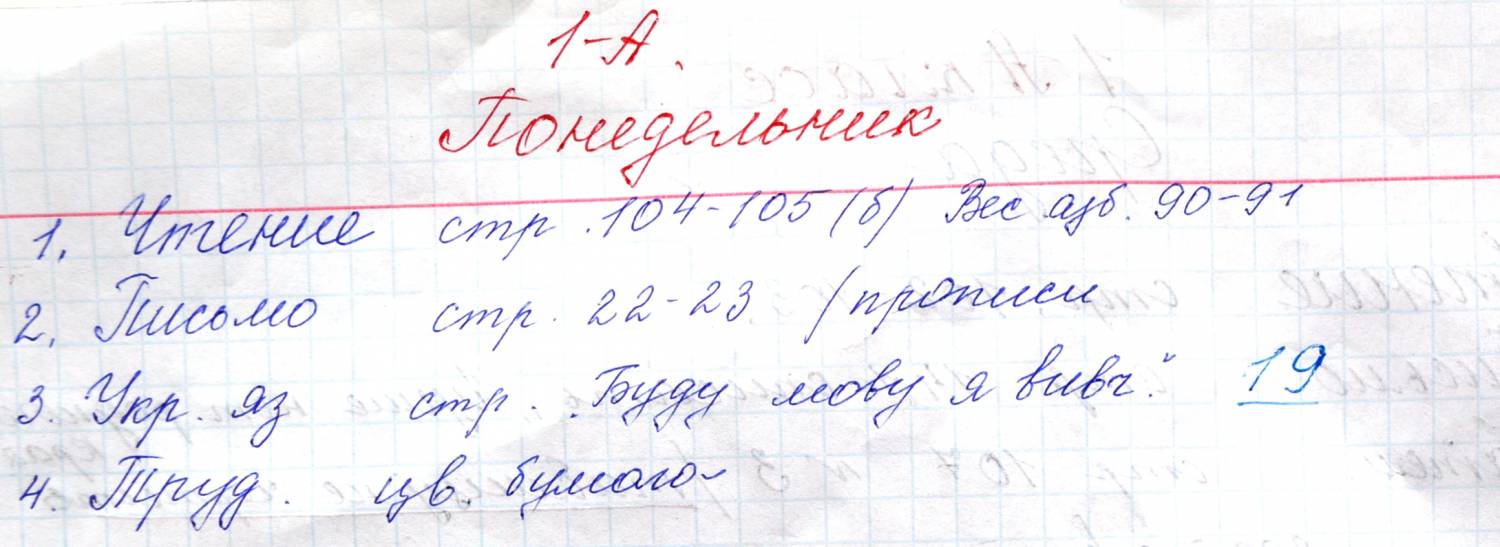 1-А.
Понедельник
1. Чтение стр. 104-105 (б) Вес. азб. 90-91
2. Письмо стр. 22-23 /прописи
3. Укр. яз стр. "Буду мову я вивч." 19
4. Труд. цв. бумага